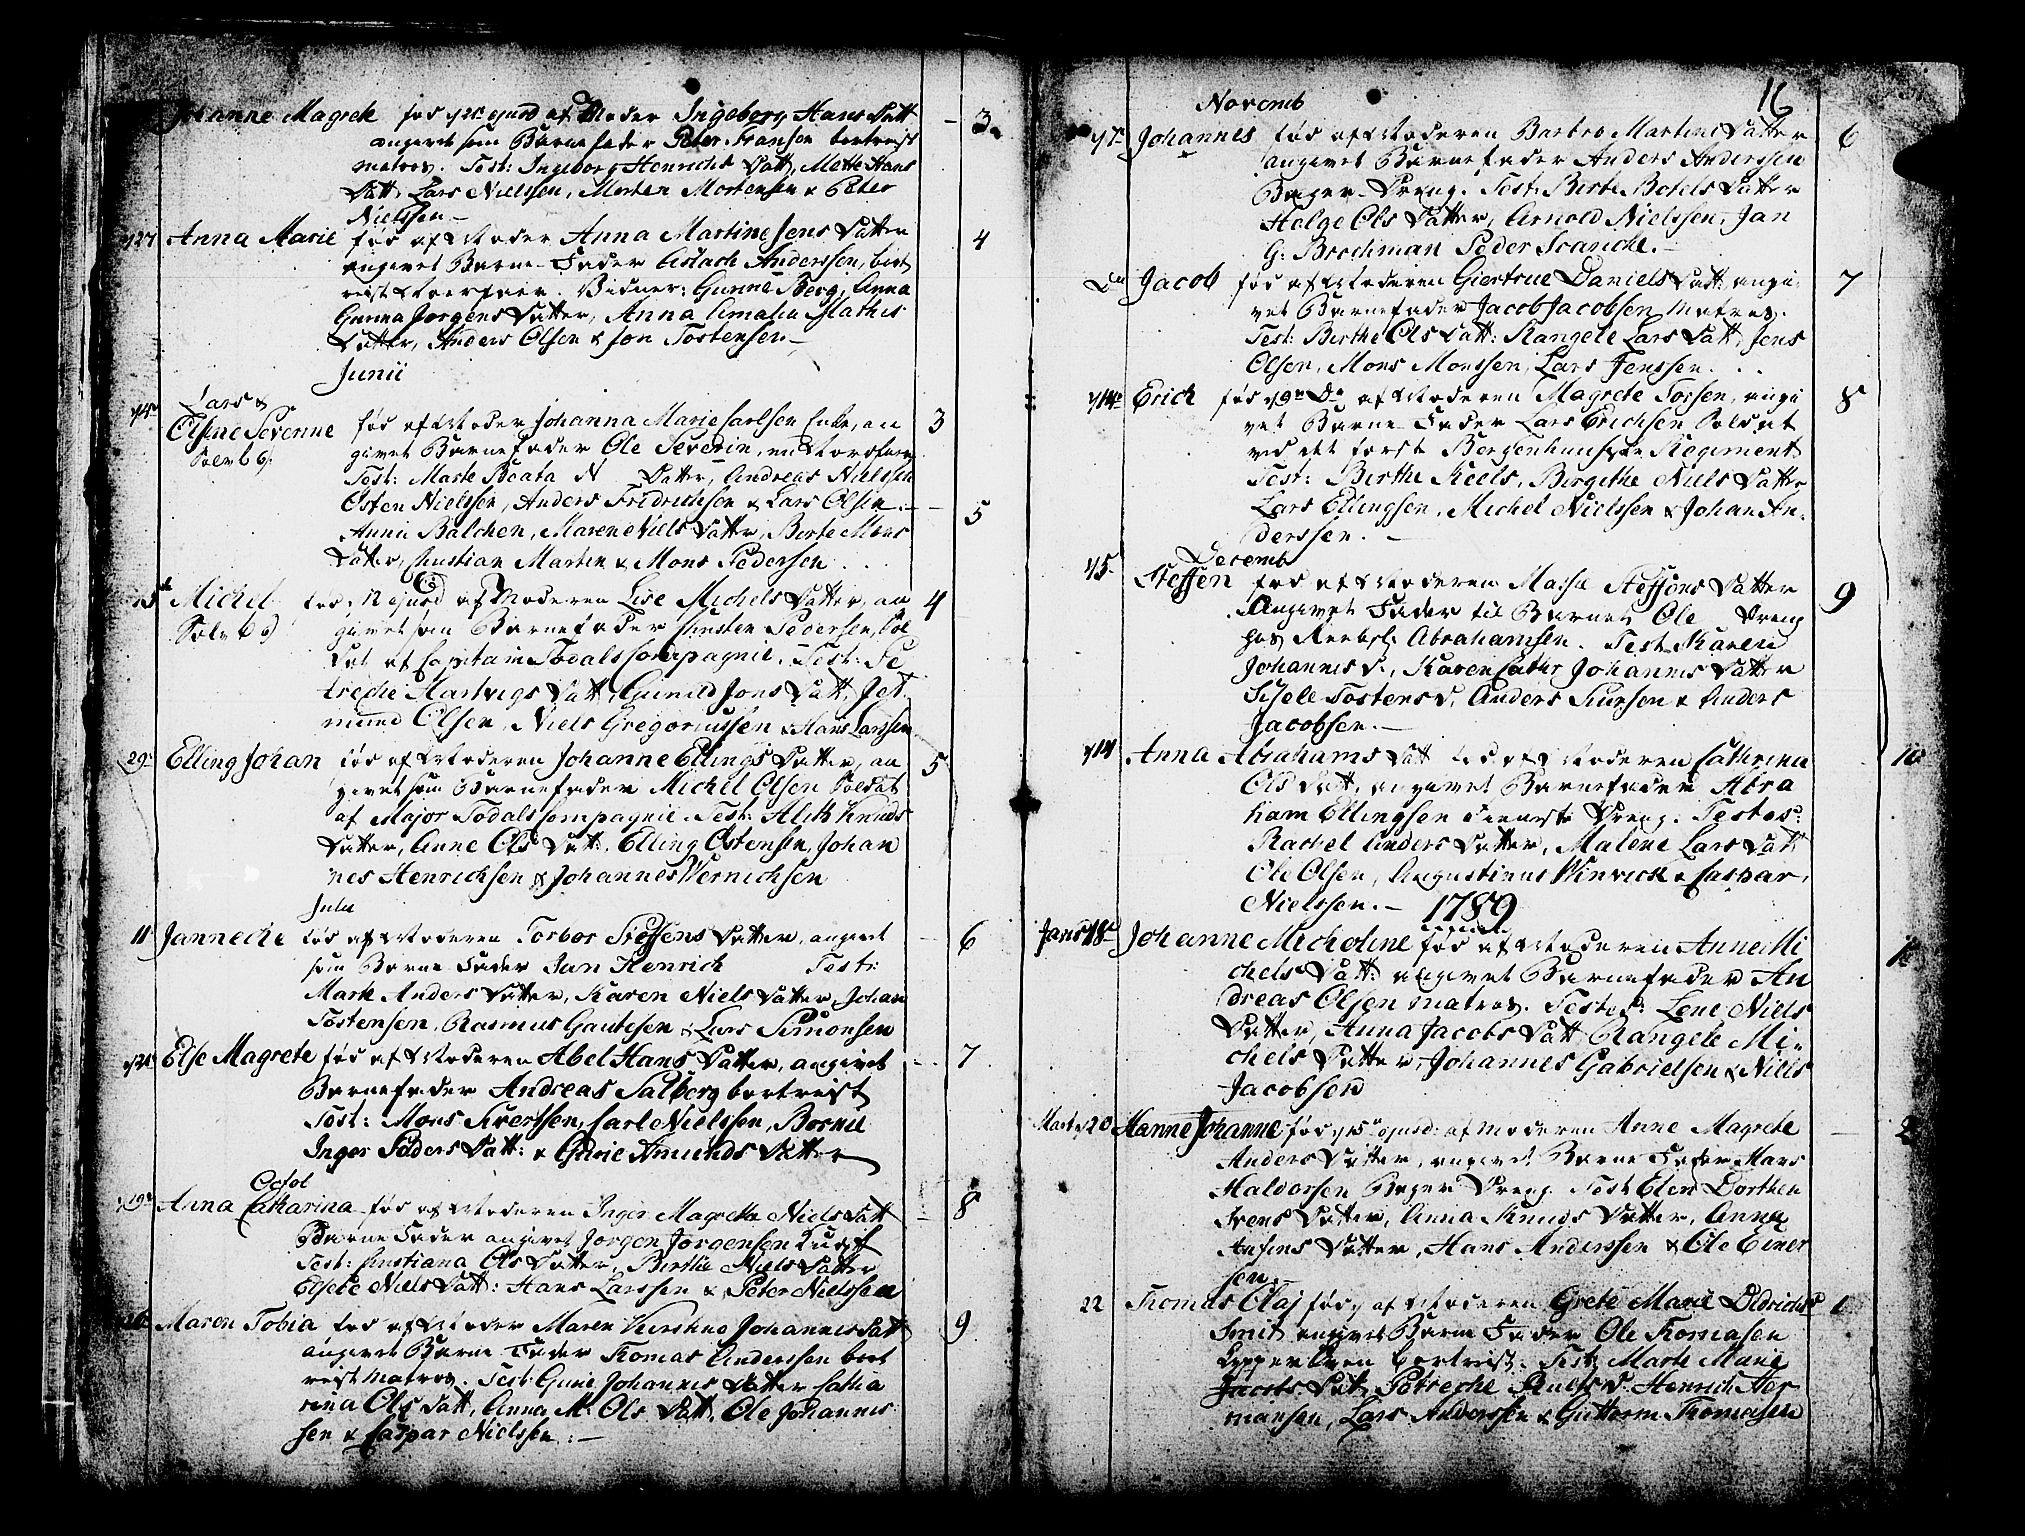 Johanne Magrete fød af Moder Ingeborg Hans Datt 3
angivet som Barnefader Peter Fransen bortreist
matros. Test: Ingeborg Henrichs Datt, Mette Hans
Datt, Lars Nielssen, Morten Mortensen & Peter
Nielssen
Anna Marie fød af Moder Anna Martine Jens Datter 4
angivet Barne-Fader Anderssen, bort
reist. Vidner: Gunne Berg, Anna
Gunna Jørgens Datter, Anna Amalia Mathis
Datter, Anders Olsen & Jon Tostensen
Junii
Lars &
Olsine Severine fød af Moder Johanna Marie Carlsen Enke, an 3
givet Barnefader Ole Severin, en
Test: Marte Beata N Datter, Andreas Nielssen
Østen Nielssen, Anders Fridrichsen & Lars Olsen 5
Anne Balchen, Maren Niels Datter, Berte Mons
Datter, Christian Martin & Mons Pedersen
Michel fød af Moderen Lise Michels Datter, an 4
givet som Barnefader Christen Pedersen, Sol
dat af Capitain Todals Compagnie. Test: Pe
treche Hartvigs Datt, Gunild Jons Datt, Jet
mund Olsen, Niels Gregoriussen & Hans Larssen
29 Elling Johan fød af Moderen Johanne Ellings Datter, an 5
givet som Barnefader Michel Olsen Soldat
af Major Todals Compagnie. Test: Knuds
Datter, Anne Ols Datt, Elling Østensen, Johan
nes Henrichsen & Johannes Wernichsen
Julii
11 Janneche fød af Moderen Torbor Steffens Datter, angivet 6
som Barne Fader Jan Henrich Test:
Marte Anders Datter, Karen Niels Datter, Johan
Tostensen, Rasmus Gautesen & Lars Simonsen
Else Magrete fød af Moderen Abel Hans Datter, angivet 7
Barnefader Andreas Salberg bortreist
Test: Mons Siversen, Carl Nielssen,
Inger Peders Datt: & Gurie Amunds Datter
Octob
19 Anna Catharina fød af Moderen Inger Magrete Niels Datt 8
Barne Fader angivet Jørgen Jørgensen
Test: Christiana Ols Datter, Berthe Niels Datter
Elsebe Niels Datt: Hans Larssen & Peter Nielssen
Maren Tobia fød af Moder Maren Kirstine Johannes Datt 9
angivet Barne Fader Thomas Anderssen bort
reist Matros. Test: Gurie Johannes Datter Catha
rina Ols Datt, Anna M: Ols Datt, Ole Johannes
sen & Caspar Nielssen
16
Novemb
Johannes fød af Moderen Barbro Martins Datter 6
angivet Barnefader Anders Anderssen
Bager-Dreng. Test: Berte Botels Datter
Helge Ols Datter, Arnold Nielssen, Jan
G: Brochman Peder Scanche.
Do Jacob fød af Moderen Giertrue Daniels Datt: angi 7
vet Barnefader Jacob Jacobsen Matros.
Test: Berthe Ols Datt: Rangele Lars Datt, Jens
Olsen, Mons Monssen, Lars Jenssen.
Erich fød af Moderen Magrete Torsen, angi 8
vet Barne-Fader Lars Erichsen Soldat
ved det første Bergenhuusiske Regiment
Test: Berthe Neels, Birgithe Niels Datter
Lars Ellingsen, Michel Nielssen & Johan An
derssen.
Decemb
Steffen fød af Moderen Steffens Datter 9
Angivet Fader til Barnet Ole Dreng
hos Abrahamsen. Test: Karen
Johannes D., Karen Cathr Johannes Datter
Sissele Tostens D, Anders Siursen & Anders
Jacobsen.
Anna Abrahams Datt fød af Moderen Cathrina 10
Ols Datt, angivet Barnefader Abra
ham Ellingsen Tieneste Dreng. Testes:
Rachel Anders Datter, Malene Lars Datt
Ole Olsen, Augustinus Winrich & Caspar
Nielssen.
1789
Johanne Micheline fød af Moderen Anne Mi 1
chels Datt: angivet Barnefader An
dreas Olsen Matros. Testes: Lene Niels
Datter, Anna Jacobs Datt Rangele Mi
chels Datter, Johannes Gabrielsen & Niels
Jacobsen
Hanne Johanne fød af Moderen Anne Magrete 2
Anders Datter, angivet Barne Fader Hans
Haldorsen Bager Dreng. Test: Elen Dorthea
Datter, Anna Knuds Datter, Anna
Anfins Datter, Hans Anderssen & Ole Einer
sen.
22 Thomas Olaj fød af Moderen Grete Marie Didrichs 1
Smit angivet Barne Fader Ole Thomasen
bortreist. Test: Marte Marie
Jacobs Datt, Petreche D. Henrich Her
mansen, Lars Anderssen & Guttorm Thomasen